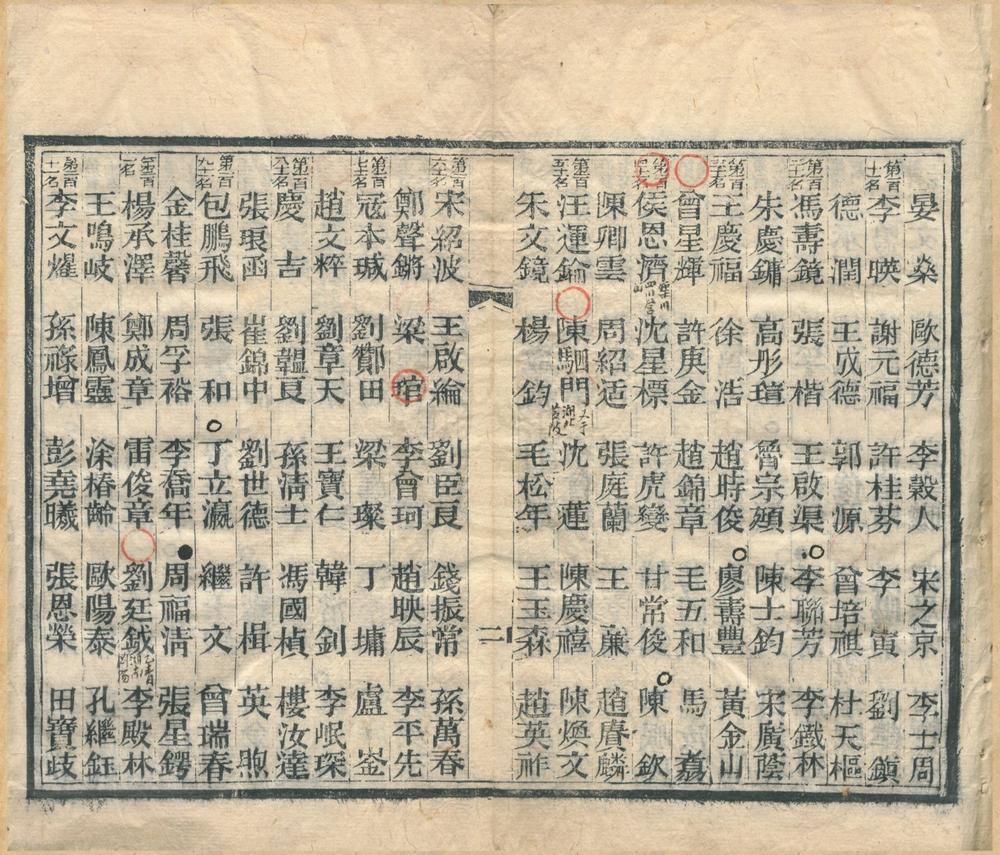 晏燊 歐德芳 李穀人 宋之京 李士周
第百十名 李暎 謝元福 許桂芬 李寅 劉鎮
德潤 王成德 郭源 曾培祺 杜天樞
第百二十名 馮壽鏡 張楷 王啟渠 李聯芳 李鐵林
朱慶鏞 高彤瑄 曾宗 陳士鈞 宋廣蔭
第百三十名 王慶福 徐浩 趙時俊 廖壽豐 黃金山
曾星輝 許庚金 趙錦章 毛五和 馬
第百四十名 侯恩濟 沈星標 許虎變 甘常俊 陳欽
陳卿雲 周紹适 張庭蘭 王廉 趙賡麟
第百五十名 汪運鑰 陳駟門 沈蓮 陳慶禧 陳煥文
朱文鏡 楊鈞 毛松年 王玉森 趙英祚
二
第百六十名 宋紹波 王啟綸 劉臣良 錢振常 孫萬春
鄭聲鏘 梁琯 李會珂 趙映辰 李平先
第百七十名 寇本瑊 劉酇田 梁璨 丁墉 盧崟
趙文粹 劉章天 王寶仁 韓釗 李岷琛
第百八十名 慶吉 劉韞良 孫淸士 馮國楨 樓汝達
張琅函 崔錦中 劉世德 許楫 英煦
第百九十名 包鵬飛 張和 丁立瀛 繼文 曾瑞春
金桂馨 周孚裕 李喬年 周福淸 張星鍔
第二百一名 楊承澤 鄭成章 雷俊章 劉廷鉞 李殿林
王鳴岐 陳鳳靈 涂椿齡 歐陽泰 孔繼鈺
第二百十一名 李文燿 孫祿增 彭堯曦 張恩榮 田寶歧